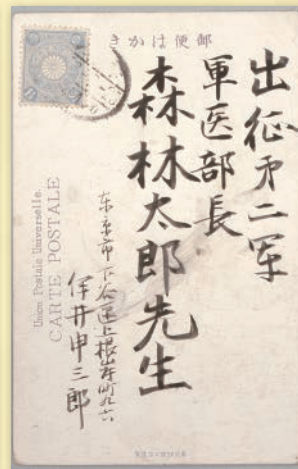 郵便はかき
出征才二军
軍医部長
森林太郎先生
东京市下谷区上根岸町九六
伊井申三郎
Union Postale Universelle.
CARTE POSTALE